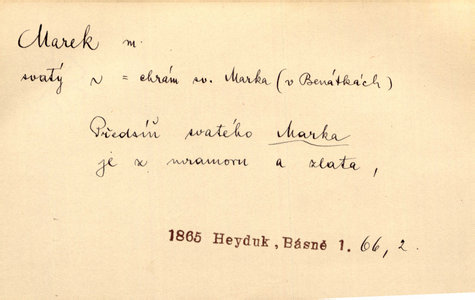 Marek m.
svatý ~ = chrám sv. Marka (v Benátkách)
Předsíň svatého Marka
je z mramoru a zlata,
1865 Heyduk, Básně 1. 66, 2.